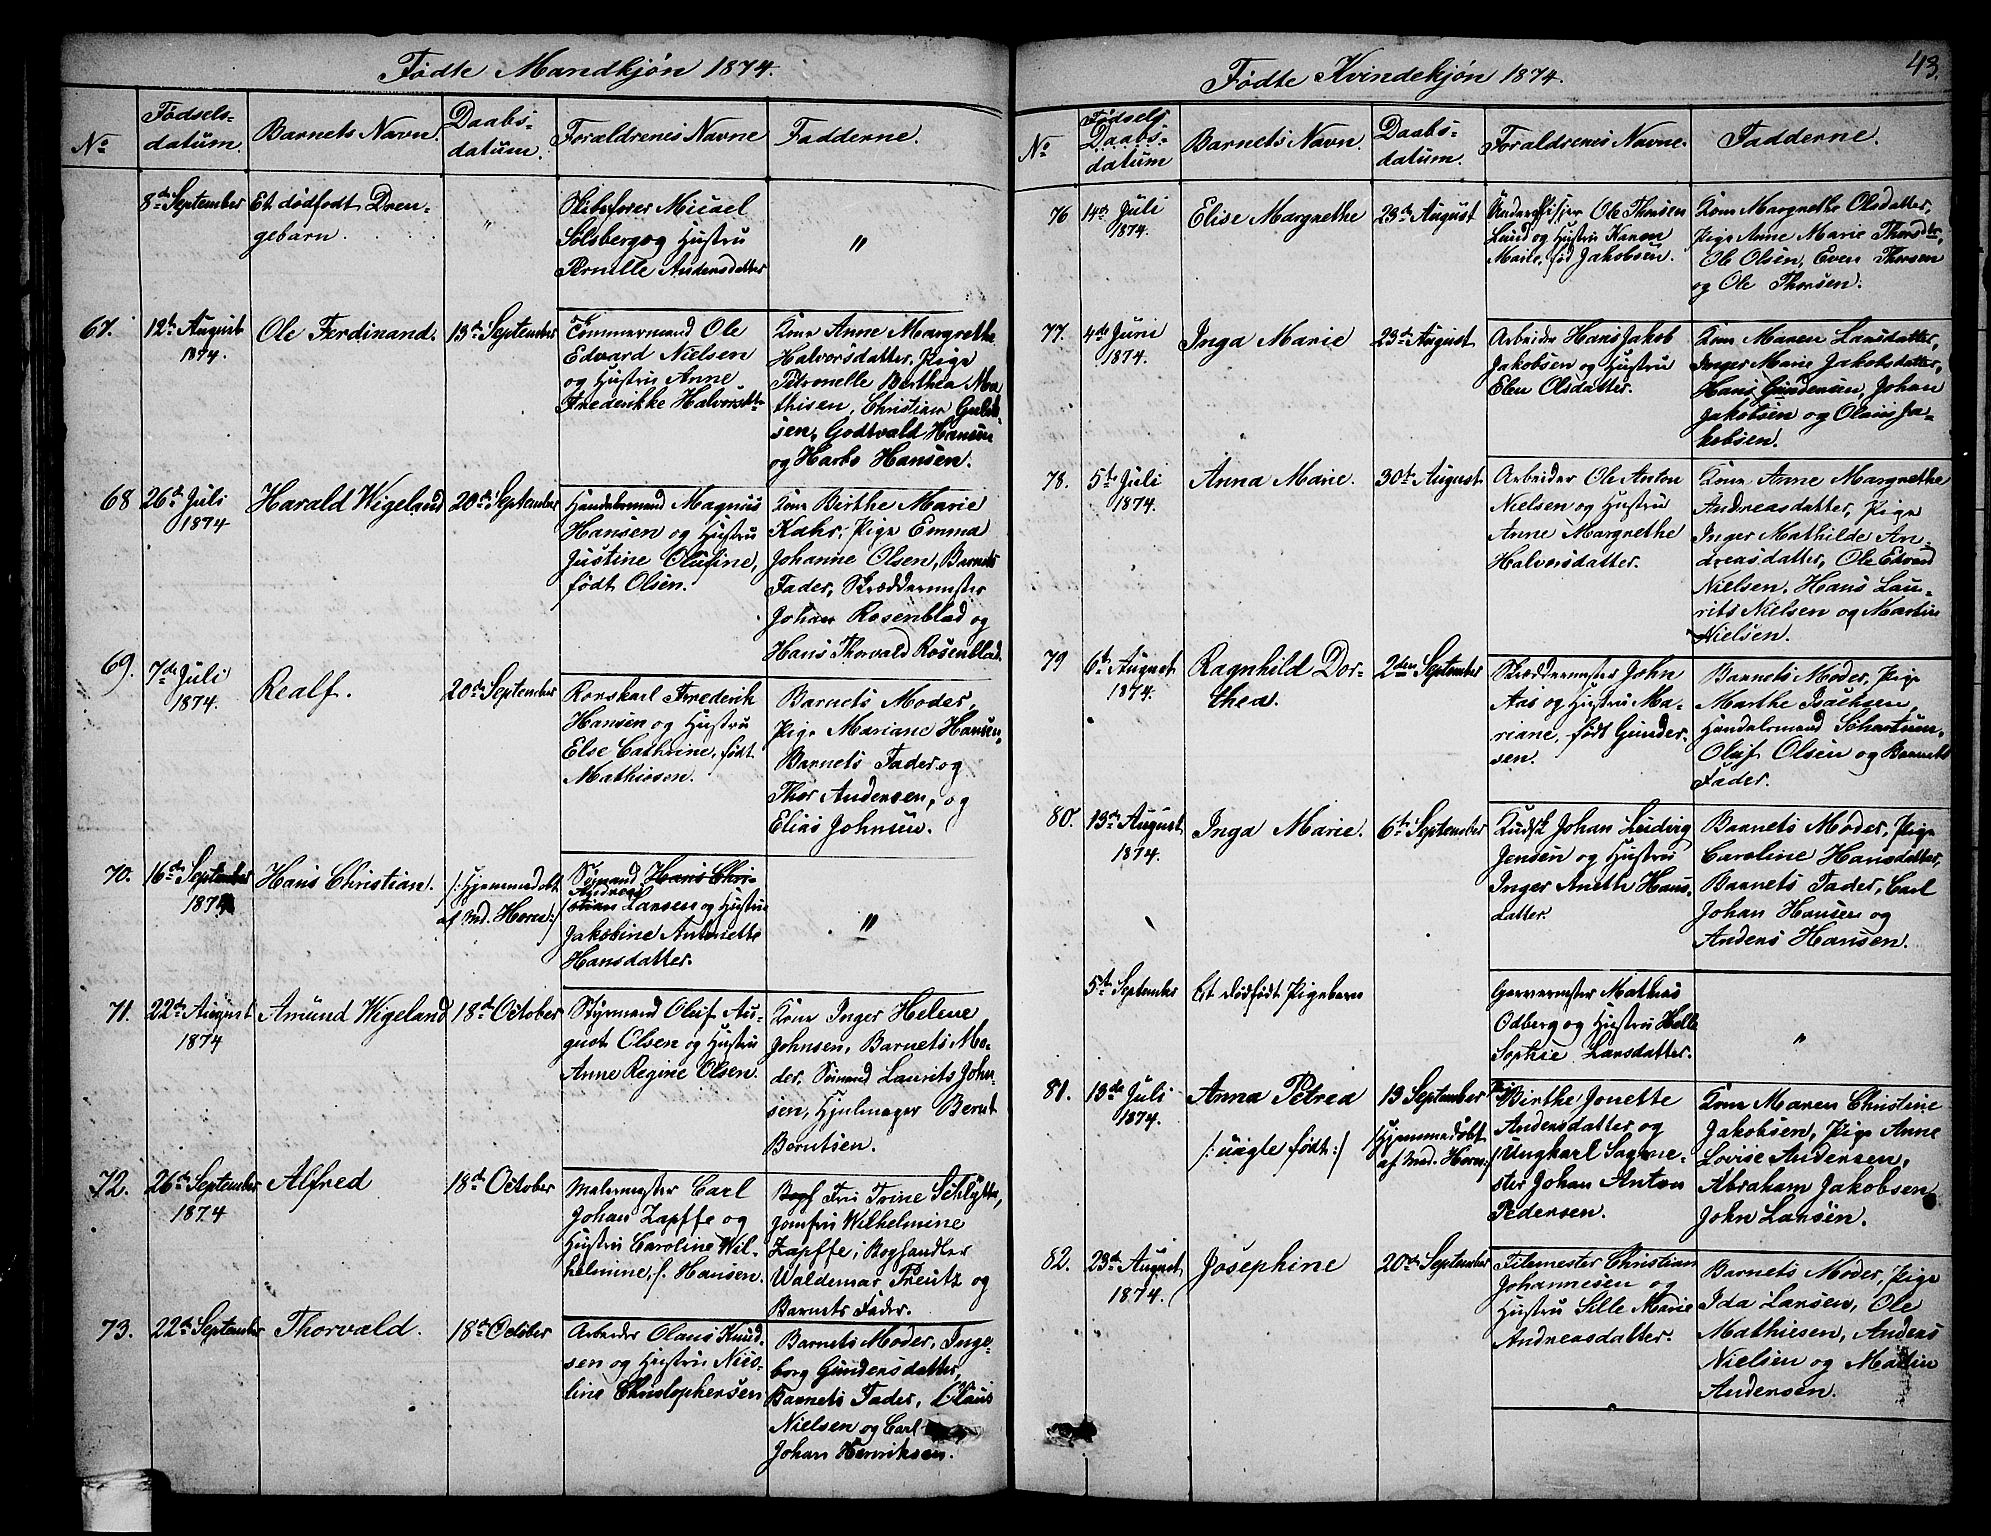 Fødte Mandkjøn 1874.
No
Fødsels-
datum.
Barnets Navn.
Daabs-
datum.
Foraldrenes Navne
Fadderne.
8de September
Et dødfødt Dren-
gebarn.
"
Skibsfører Micael
Solsberg og Hustru
Pernille Andersdatter
"
67.
12te August
1874.
Ole Ferdinand.
13de September
Tømmermand Ole
Edvard Nielsen
og Hustru Anne
Frederikke Halvorsdtr
Kone Anne Margrethe
Halvorsdatter, Pige
Petronelle Berthea Ma-
thisen, Christian
sen, Godtvald Hansen
og Harbo Hansen.
68
26de Juli
1874
Harald Wigeland
20de September
Handelsmand Magnus
Hansen og Hustru
Justine Olufine,
født Olsen.
Kone Birthe Marie
Kahrs, Pige Emma
Johanne Olsen, Barnets
Fader, Skræddermester
Johan Rosenblad og
Hans Thorvald Rosenblad.
69.
7de Juli
1874.
Realf.
20de September
Rorskarl Frederik
Hansen og Hustru
Else Cathrine, født
Mathiesen.
Barnets Moder,
Pige Mariane Hansen,
Barnets Fader og
Thor Andersen, og
Elias Johnsen.
70.
16de September
1874
Hans Christian.
/:Hjemmedøbt
af Md. Horn:/
Sømand Hans Chri-
Andreas
stian Larsen og Hustru
Jakobine Antonette
Hansdatter.
"
71.
22de August
1874
Amund Wigeland
18de October
Styrmand Oluf Au-
gust Olsen og Hustru
Anne Regine Olsen.
Kone Inger Helene
Johnsen, Barnets Mo-
der, Sømand Laurits John-
sen, Hjulmager Bernt
Berntsen.
72.
26de September
1874
Alfred
18de October
Malermester Carl
Johan Zapffe og
Hustru Caroline Wil-
helmine, f. Hansen.
Fru Trine Schlytter,
Jomfru Wilhelmine
Zapffe, Boghandler
Waldemar Preutz og
Barnets Fader.
73.
22de September
Thorvald.
18de October
Arbeider Olaus Knud-
sen og Hustru Nics-
line Christophersen
Barnets Moder, Inge-
borg Gundersdatter,
Barnets Fader, Claus
Nielsen og Carl
Johan Henriksen.
43.
Fødte Kvindekjøn 1874.
No
Fødsels
Daabs-
datum
Barnets Navn.
Daabs-
datum.
Foraldrenes Navne.
Fadderne.
76
14de Juli
1874.
Elise Margrethe
23de August
Ole Thorsen
Lund og Hustru Karen
Marie, fød Jakobsen.
Kone Margrethe Olsdatter,
Pige Anne Marie Thorsdtr,
Ole Olsen, Even Thorsen
og Ole Thorsen.
77.
4de Juni
1874.
Inga Marie
23de August
Arbeider Hans Jakob
Jakobsen og Hustru
Elen Olsdatter.
Kone Maren Larsdatter,
Inger Marie Jakobsdatter,
Hans Gundersen, Johan
Jakobsen og Olaus Ja-
kobsen.
78.
5te Juli
1874.
Anna Marie.
30te August.
Arbeider Ole Anton
Nielsen og Hustru
Anne Margrethe
Halvorsdatter.
Kone Anne Margrethe
Andreasdatter, Pige
Inger Mathilde An-
dreasdatter, Ole Edvard
Nielsen, Hans Lau-
rits Nielsen og Martin
Nielsen.
79
6te August
1874.
Ragnhild Dor-
thea.
2den September
Skræddermester John
Aas og Hustru Ma-
riane, født Gunder-
sen.
Barnets Moder, Pige
Marthe Isachsen,
Handelsmand Schartum,
Oluf Olsen og Barnets
Fader.
80.
13de August
1874.
Inga Marie.
6te September
Kudsk Johan Ludvig
Jensen og Hustru
Inger Anette Hans-
datter.
Barnets Moder, Pige
Caroline Hansdatter,
Barnets Fader, Carl
Johan Hansen og
Anders Hansen.
5te September
Et dødfødt Pigebarn
Garvermester Mathias
Odberg og Hustru Helle
Sophie Larsdatter.
"
81.
13de Juli
1874.
Anna Petrea
/: uægte født:/
13 September
/Hjemmedøbt
af Md. Horn:/
Birthe Jonette
Andersdatter og
Ungkarl Sagme-
ster Johan Anton
Pedersen.
Kone Maren Christine
Jakobsen, Pige Anne
Lovise Andersen,
Abraham Jakobsen
John Larsen.
82.
23de August
1874.
Josephine
20de September
Filemester Christian
Johannesen og
Hustru Sille Marie
Andreasdatter.
Barnets Moder, Pige
Ida Larsen, Ole
Mathiesen, Anders
Nielsen og Martin
Andersen.